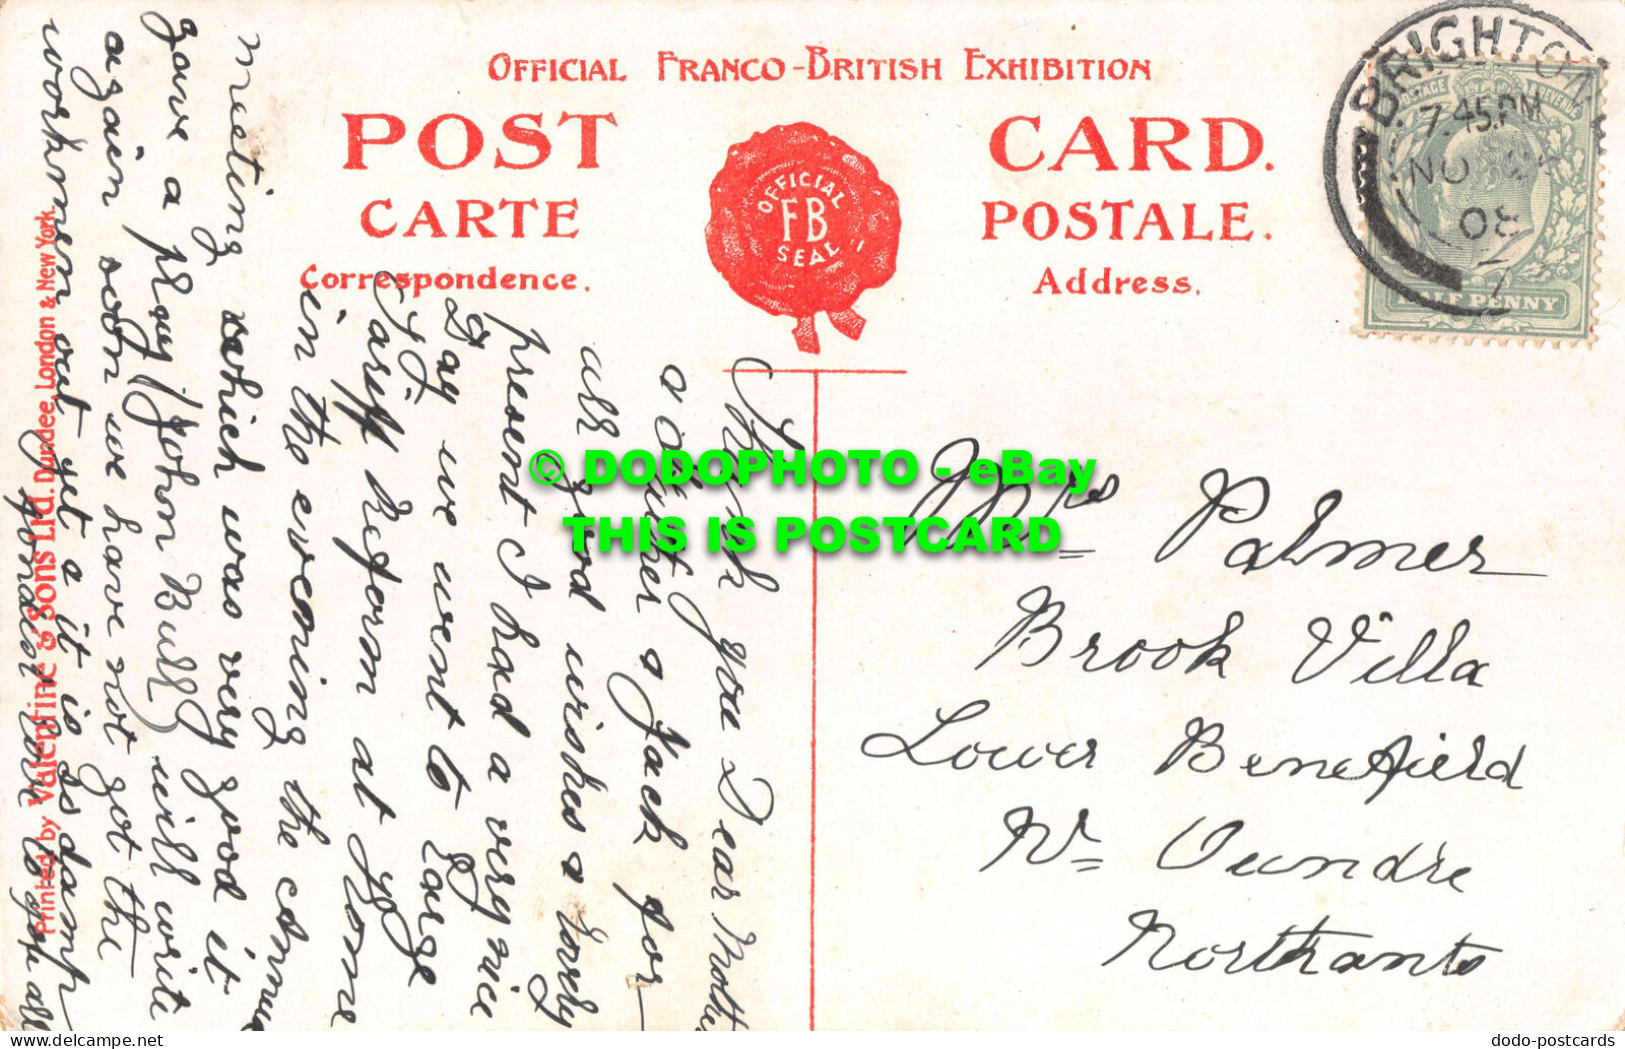 OFFICIAL FRANCO-BRITISH EXHIBITION
POST CARD.
CARTE POSTALE.
Correspondence. Address.
OFFICIAL
FB
SEAL
BRIGHTON
7.45PM
NO
08
POSTAGE REVENUE
HALF PENNY
Thank you Dear Mother
& Jack for
all good wishes & lovely
present I had a very nice
Day we went to Large
Tariff Reform at Home
in the evening the
meeting which was very good it
gave a play (John Bull) will write
again soon we have not got the
workmen out yet & it is so damp
fondest love to you all
Printed by Valentine & Sons Ltd. Dundee, London & New York.
Mrs Palmer
Brook Villa
Lower Benefield
Nr Oundle
Northants
© DODOPHOTO - eBay
THIS IS POSTCARD
www.delcampe.net
dodo-postcards